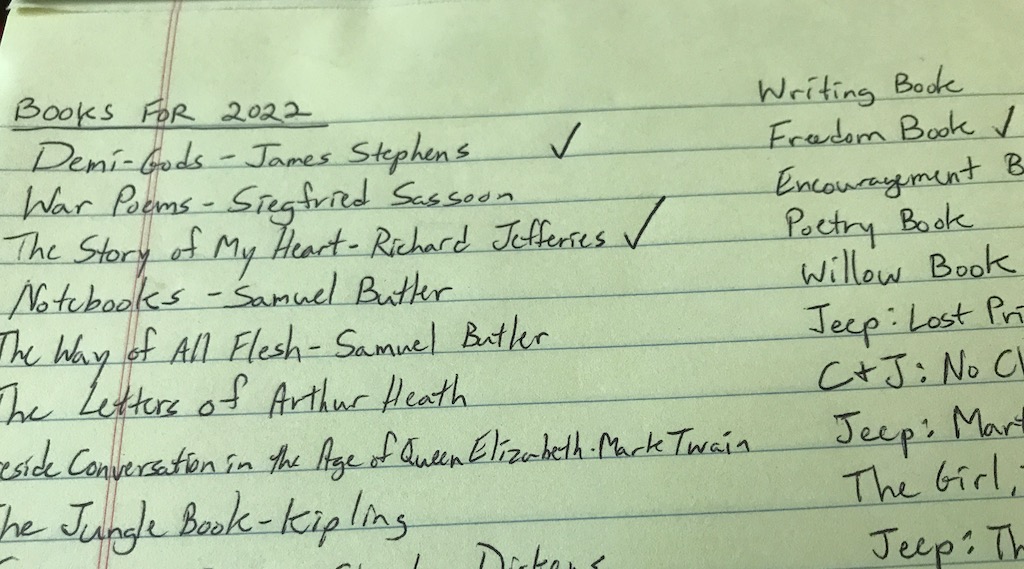 Books For 2022
Demi-Gods - James Stephens ✓
War Poems - Siegfried Sassoon
The Story of My Heart - Richard Jefferies ✓
Notebooks - Samuel Butler
The Way of All Flesh - Samuel Butler
The Letters of Arthur Heath
eside Conversation in the Age of Queen Elizabeth - Mark Twain
The Jungle Book - Kipling
Dickens
Writing Book
Freedom Book ✓
Encouragement B
Poetry Book
Willow Book
Jeep: Lost Pri
C+J: No Cl
Jeep: Mart
The Girl,
Jeep: Th